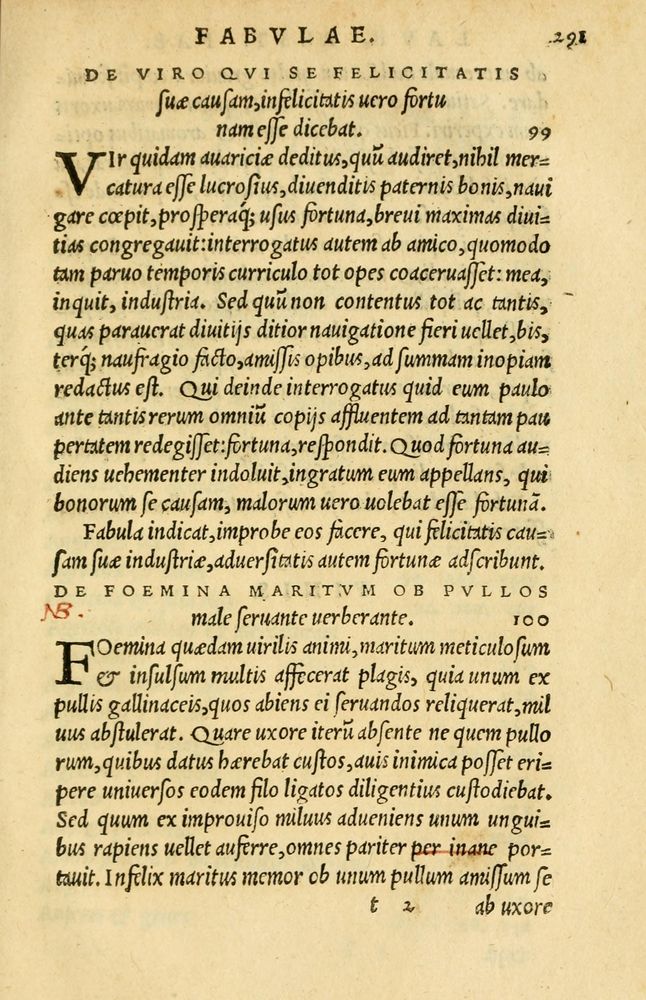 FABVLAE. 291
DE VIRO QVI SE FELICITATIS
suæ causam, infelicitatis uero fortu
nam esse dicebat. 99
VIr quidam auariciæ deditus, quũ audiret, nihil mer=
catura esse lucrosius, diuenditis paternis bonis, naui
gare cœpit, prosperaq́; usus fortuna, breui maximas diui=
tias congregauit: interrogatus autem ab amico, quomodo
tam paruo temporis curriculo tot opes coaceruasset: mea,
inquit, industria. Sed quũ non contentus tot ac tantis,
quas parauerat diuitijs ditior nauigatione fieri uellet, bis,
terq́; naufragio facto, amissis opibus, ad summam inopiam
redactus est. Qui deinde interrogatus quid eum paulo
ante tantis rerum omniũ copijs affluentem ad tantam pau
pertatem redegisset: fortuna, respondit. Quod fortuna au=
diens uehementer indoluit, ingratum eum appellans, qui
bonorum se causam, malorum uero uolebat esse fortunã.
Fabula indicat, improbe eos facere, qui felicitatis cau=
sam suæ industriæ, aduersitatis autem fortunæ adscribunt.
DE FOEMINA MARITVM OB PVLLOS
NB. male seruante uerberante. 100
FOemina quædam uirilis animi, maritum meticulosum
& insulsum multis affecerat plagis, quia unum ex
pullis gallinaceis, quos abiens ei seruandos reliquerat, mil
uus abstulerat. Quare uxore iterũ absente ne quem pullo
rum, quibus datus hærebat custos, auis inimica posset eri=
pere uniuersos eodem filo ligatos diligentius custodiebat.
Sed quum ex improuiso miluus adueniens unum ungui=
bus rapiens uellet auferre, omnes pariter per inane por=
tauit. Infelix maritus memor ob unum pullum amissum se
t 2 ab uxore